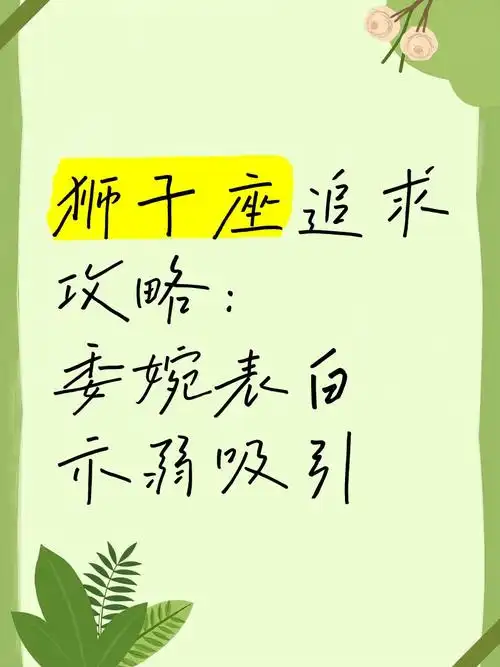 狮子座追求
攻略：
委婉表白
示弱吸引